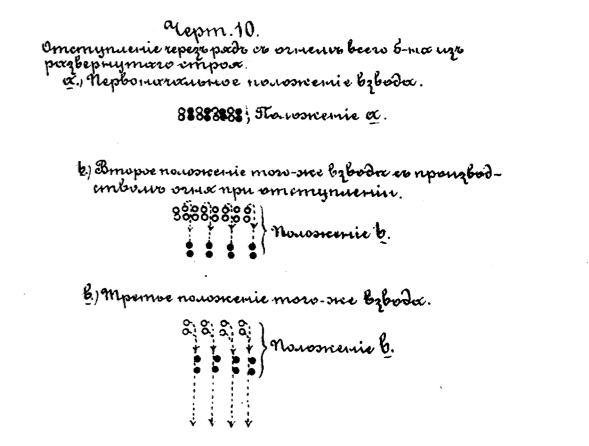 Черт. 10.
Отступленіе черезъ рядъ съ огнемъ всего б-на изъ
развернутаго строя.
а.) Первоначальное положеніе взвода.
Положеніе а.
b.) Второе положеніе того-же взвода съ производ-
ствомъ огня при отступленіи.
Положеніе b.
в.) Третье положеніе того-же взвода.
Положеніе в.